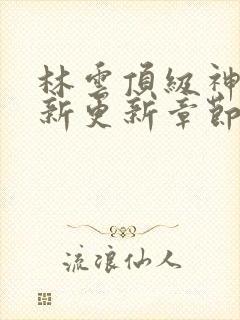 林雲頂級神
新更新章節
流浪仙人